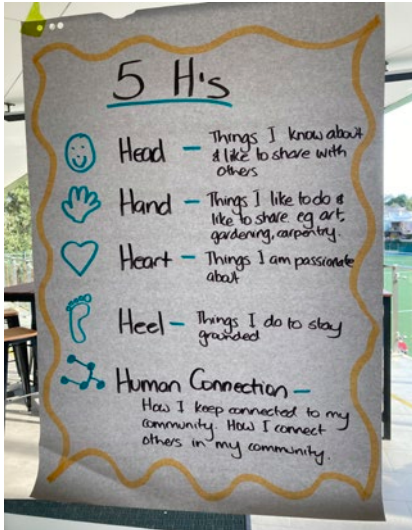 5 H's
Head - Things I know about
& like to share with
others
Hand - Things I like to do &
like to share eg art,
gardening, carpentry.
Heart - Things I am passionate
about
Heel - Things I do to stay
grounded
Human Connection -
How I keep connected to my
community. How I connect
others in my community.